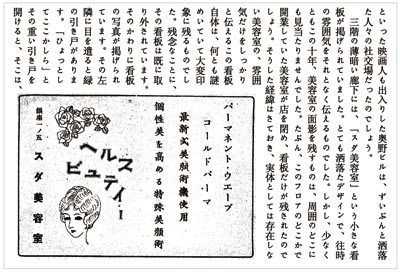 といった映画人も出入りした奥野ビルは、ずいぶんと洒落
た人々の社交場だったのでしょう。
三階の薄暗い廊下には、「スダ美容室」という小さな看
板が掲げられていました。とても洒落たデザインで、往時
の雰囲気をそれとなく伝えるものでした。しかし、少なく
ともこの十年、美容室の面影を残すものは、周囲のどこに
も見当たりませんでした。たぶん、このフロアのどこかで
開業していた美容室が店を閉め、看板だけが残されたので
しょう。そうした経緯はさておき、実体としては存在しな
い美容室の、雰囲
気だけをしっかり
と伝えるこの看板
自体は、何とも謎
めいていて大変印
象に残るものでし
た。残念なことに、
その看板は既に取
り外されています。
そのかわりに看板
の写真が掲げられ
ています。その左
隣に目を遣ると緑
の引き戸がありま
す。「ひょっとし
てここかしら」と
その重い引き戸を
開けると、そこは、
パーマネント・ウエーブ
コールドパーマ
最新式美顔術機使用
個性美を高める特殊美顔術
ヘルス
ビュティー
銀座一ノ五 スダ美容室